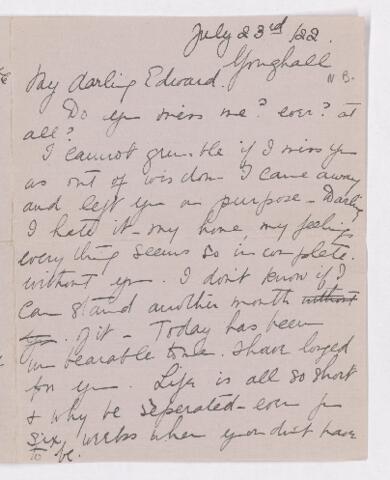 July 23rd /22.
Youghall
N.B.
My darling Edward.
Do you miss me? ever? at
all?
I cannot grumble if I miss you
as out of wisdom I came away
and left you on purpose - Darling
I hate it - my home, my feelings
everything seems so in complete.
without you. I don't know if I
can stand another month without
you. of it - Today has been
un bearable to me. I have longed
for you. Life is all so short
& why be seperated - even for
six weeks when you dont have
to be.